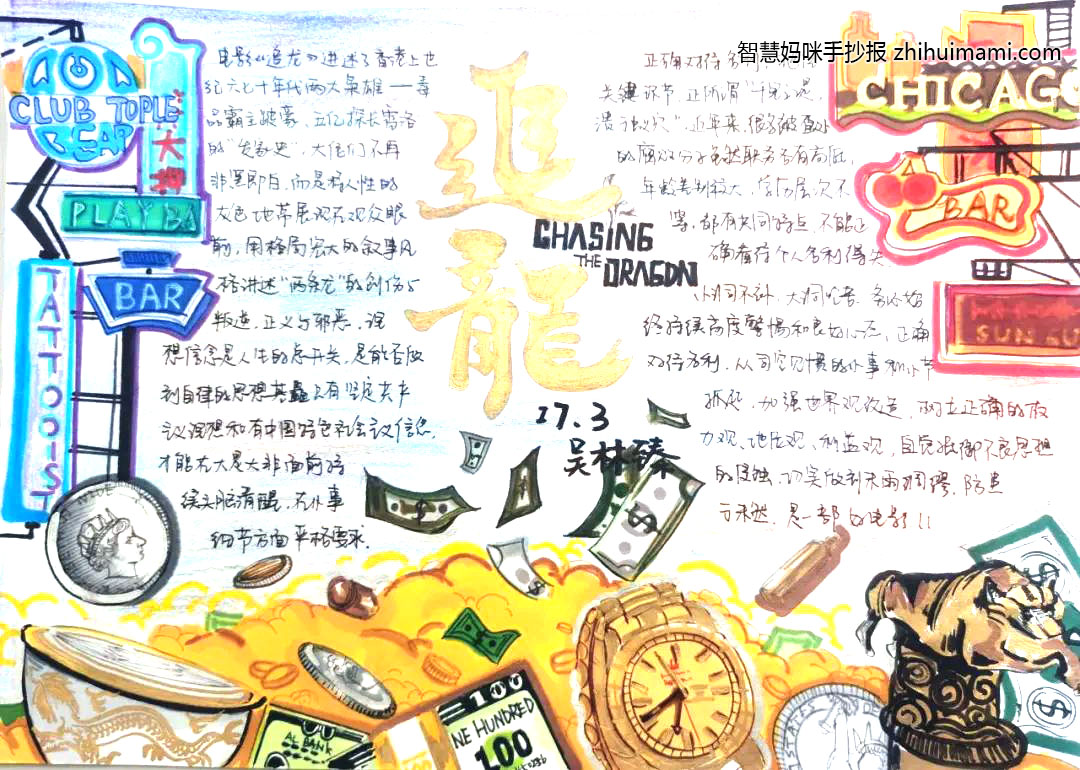 智慧妈咪手抄报 zhihuimami.com
CLUB TOPLE
BEAR
大押
PLAY BA
BAR
TATTOOIST
电影《追龙》讲述了香港上世
纪六七十年代两大枭雄一毒
品霸主跛豪、五亿探长雷洛
的"发家史"，大佬们不再
非黑即白，而是将人性的
灰色地带展现在观众眼
前，用格局宏大的叙事风
格讲述"两条龙"的创伤与
叛逆，正义与邪恶，
想信念是人生的总开关，是能否做
到自律的思想基
议理想和有中国特色社会议信念，
才能在大是大非面前将
续头脑清醒，在小事
细节方面严格要求。
追龙
CHASING
THE
DRAGON
17.3
吴林臻
正确对待名
关键环节，正所谓"千里之堤，
溃于蚁穴"，近年来，很多被查处
的腐败分子虽然职务各有高低，
年龄差别较大，层次不
等，都有共同特点，不能正
确看待个人名利得失
小洞不补，大洞吃苦，务必始
终持续高度警惕和良好心态，正确
对待名利，从司空见惯的小事和小节
抓起，加强世界观改造，树立正确的权
力观、地位观、利益观，自觉抵御不良思想
的侵蚀，切实做到未雨绸缪，防患
于未然，是一部好电影!!
CHICAGO
BAR
SUN CLU
AL BANK
100
NE HUNDRED
100